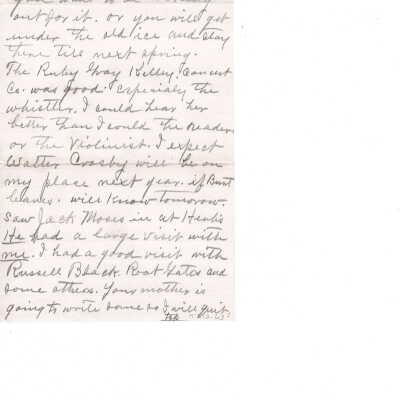 out for it. or you will get
under the old ice and stay
there till next spring.
The Ruby Gray Kelley Concert
Co. was good. especialy the
whistler. I could hear her
better than I could the reader
or the Violinist. I expect
Walter Crosby will be on
my place next year. if Burt
leaves. will know tomorrow.
Saw Jack Moses in at
He had a large visit with
me. I had a good visit with
Russell Black. Root Gates and
some others. Your mother is
going to write some so I will quit